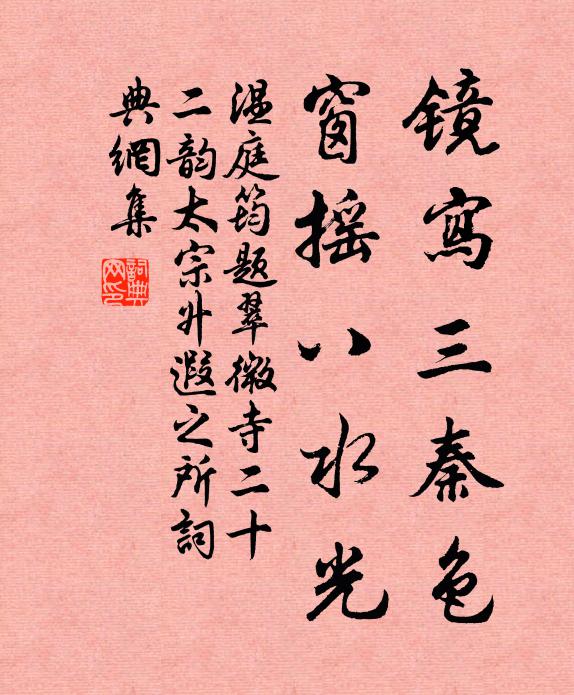 镜寫三秦色
窗摇八水光
温庭筠题翠微寺二十
二韵太宗升遐之所詞
典網集
詞典網印